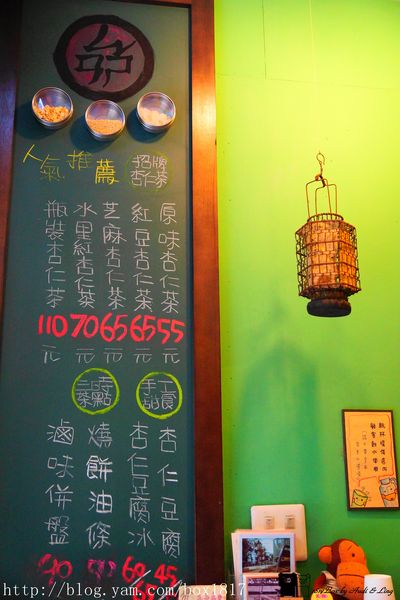 人氣推薦
招牌
杏仁茶
原味杏仁茶 55元
紅豆杏仁茶 65元
芝麻杏仁茶 65元
水里紅杏仁茶 70元
瓶裝杏仁茶 110元
手工
甜食
杏仁豆腐 45
杏仁豆腐冰 60
燒餅油條
滷味併盤
http://blog.yam.com/box1817